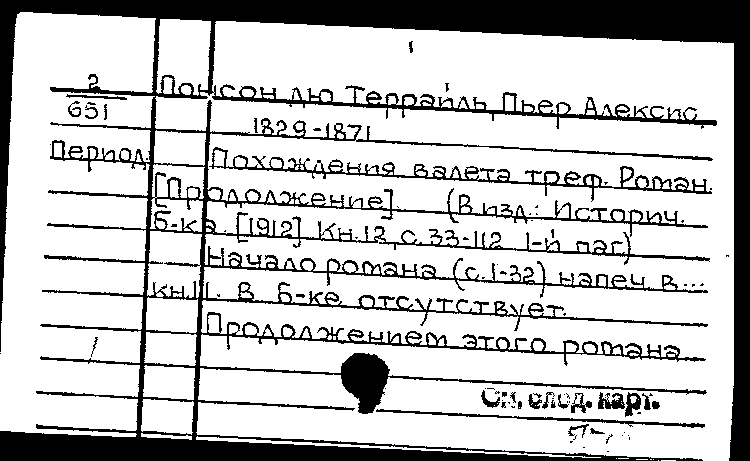 2
651
Понсон дю Террайль, Пьер Алексис,
1829-1871
Период. Похождения валета треф. Роман.
[Продолжение]. (В изд.: Историч.
б-ка. [1912]. Кн.12, с.33-112 1-й паг)
Начало романа (с.1-32) напеч. в...
кн.11. В Б-ке отсутствует.
Продолжением этого романа
См. след. карт.